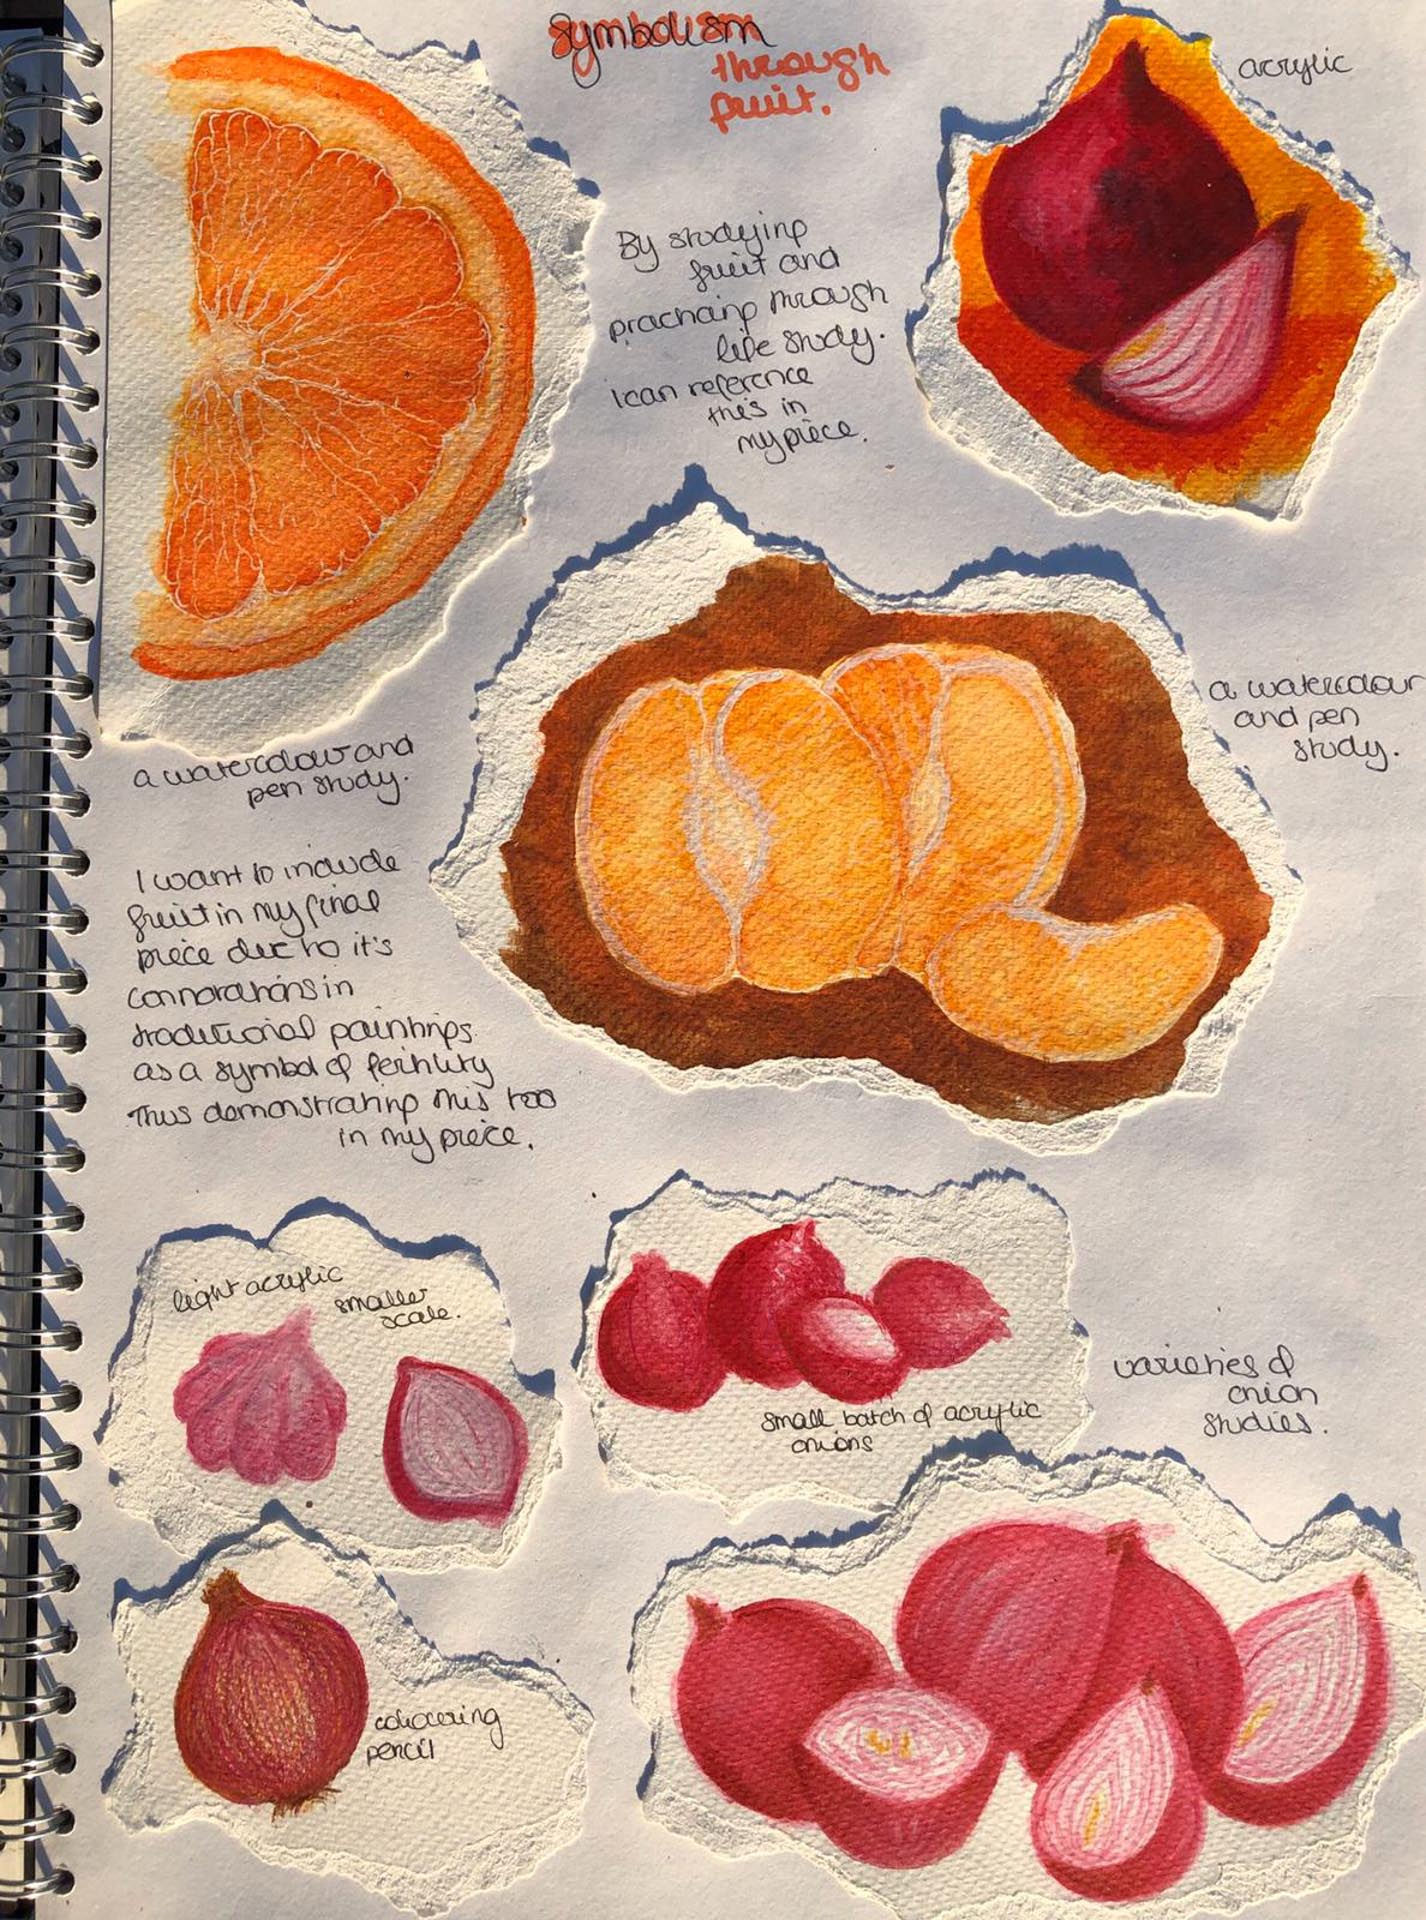 symbolism
through
fruit.
acrylic
By studying
fruit and
practicing through
life study.
I can reference
this in
my piece.
a watercolour
and pen
study.
a watercolour and
pen study.
I want to include
fruit in my final
piece due to it's
connorations in
traditional paintings
as a symbol of fertility
Thus demonstrating this too
in my piece.
light acrylic
smaller
scale.
small batch of acrylic
onions
varieties of
onion
studies.
colouring
pencil